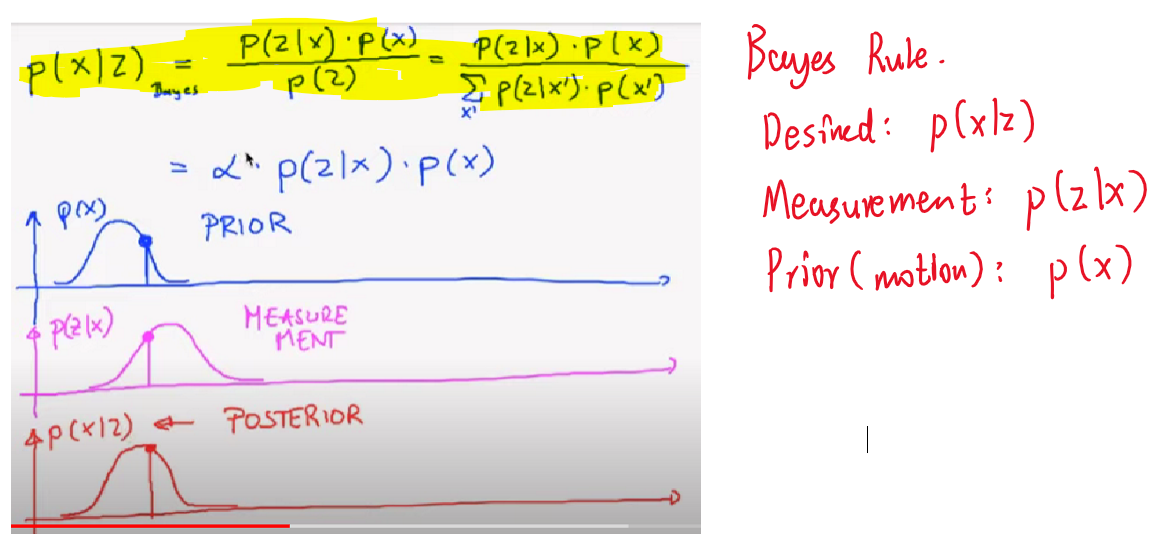 p(x|z) = p(z|x) · p(x) / p(z) = p(z|x) · p(x) / ∑ p(z|x') · p(x')
Bayes
x'
= α · p(z|x) · p(x)
p(x)
PRIOR
p(z|x)
MEASURE
MENT
p(x|z) ← POSTERIOR
Bayes Rule.
Desired: p(x|z)
Measurement: p(z|x)
Prior (motion): p(x)